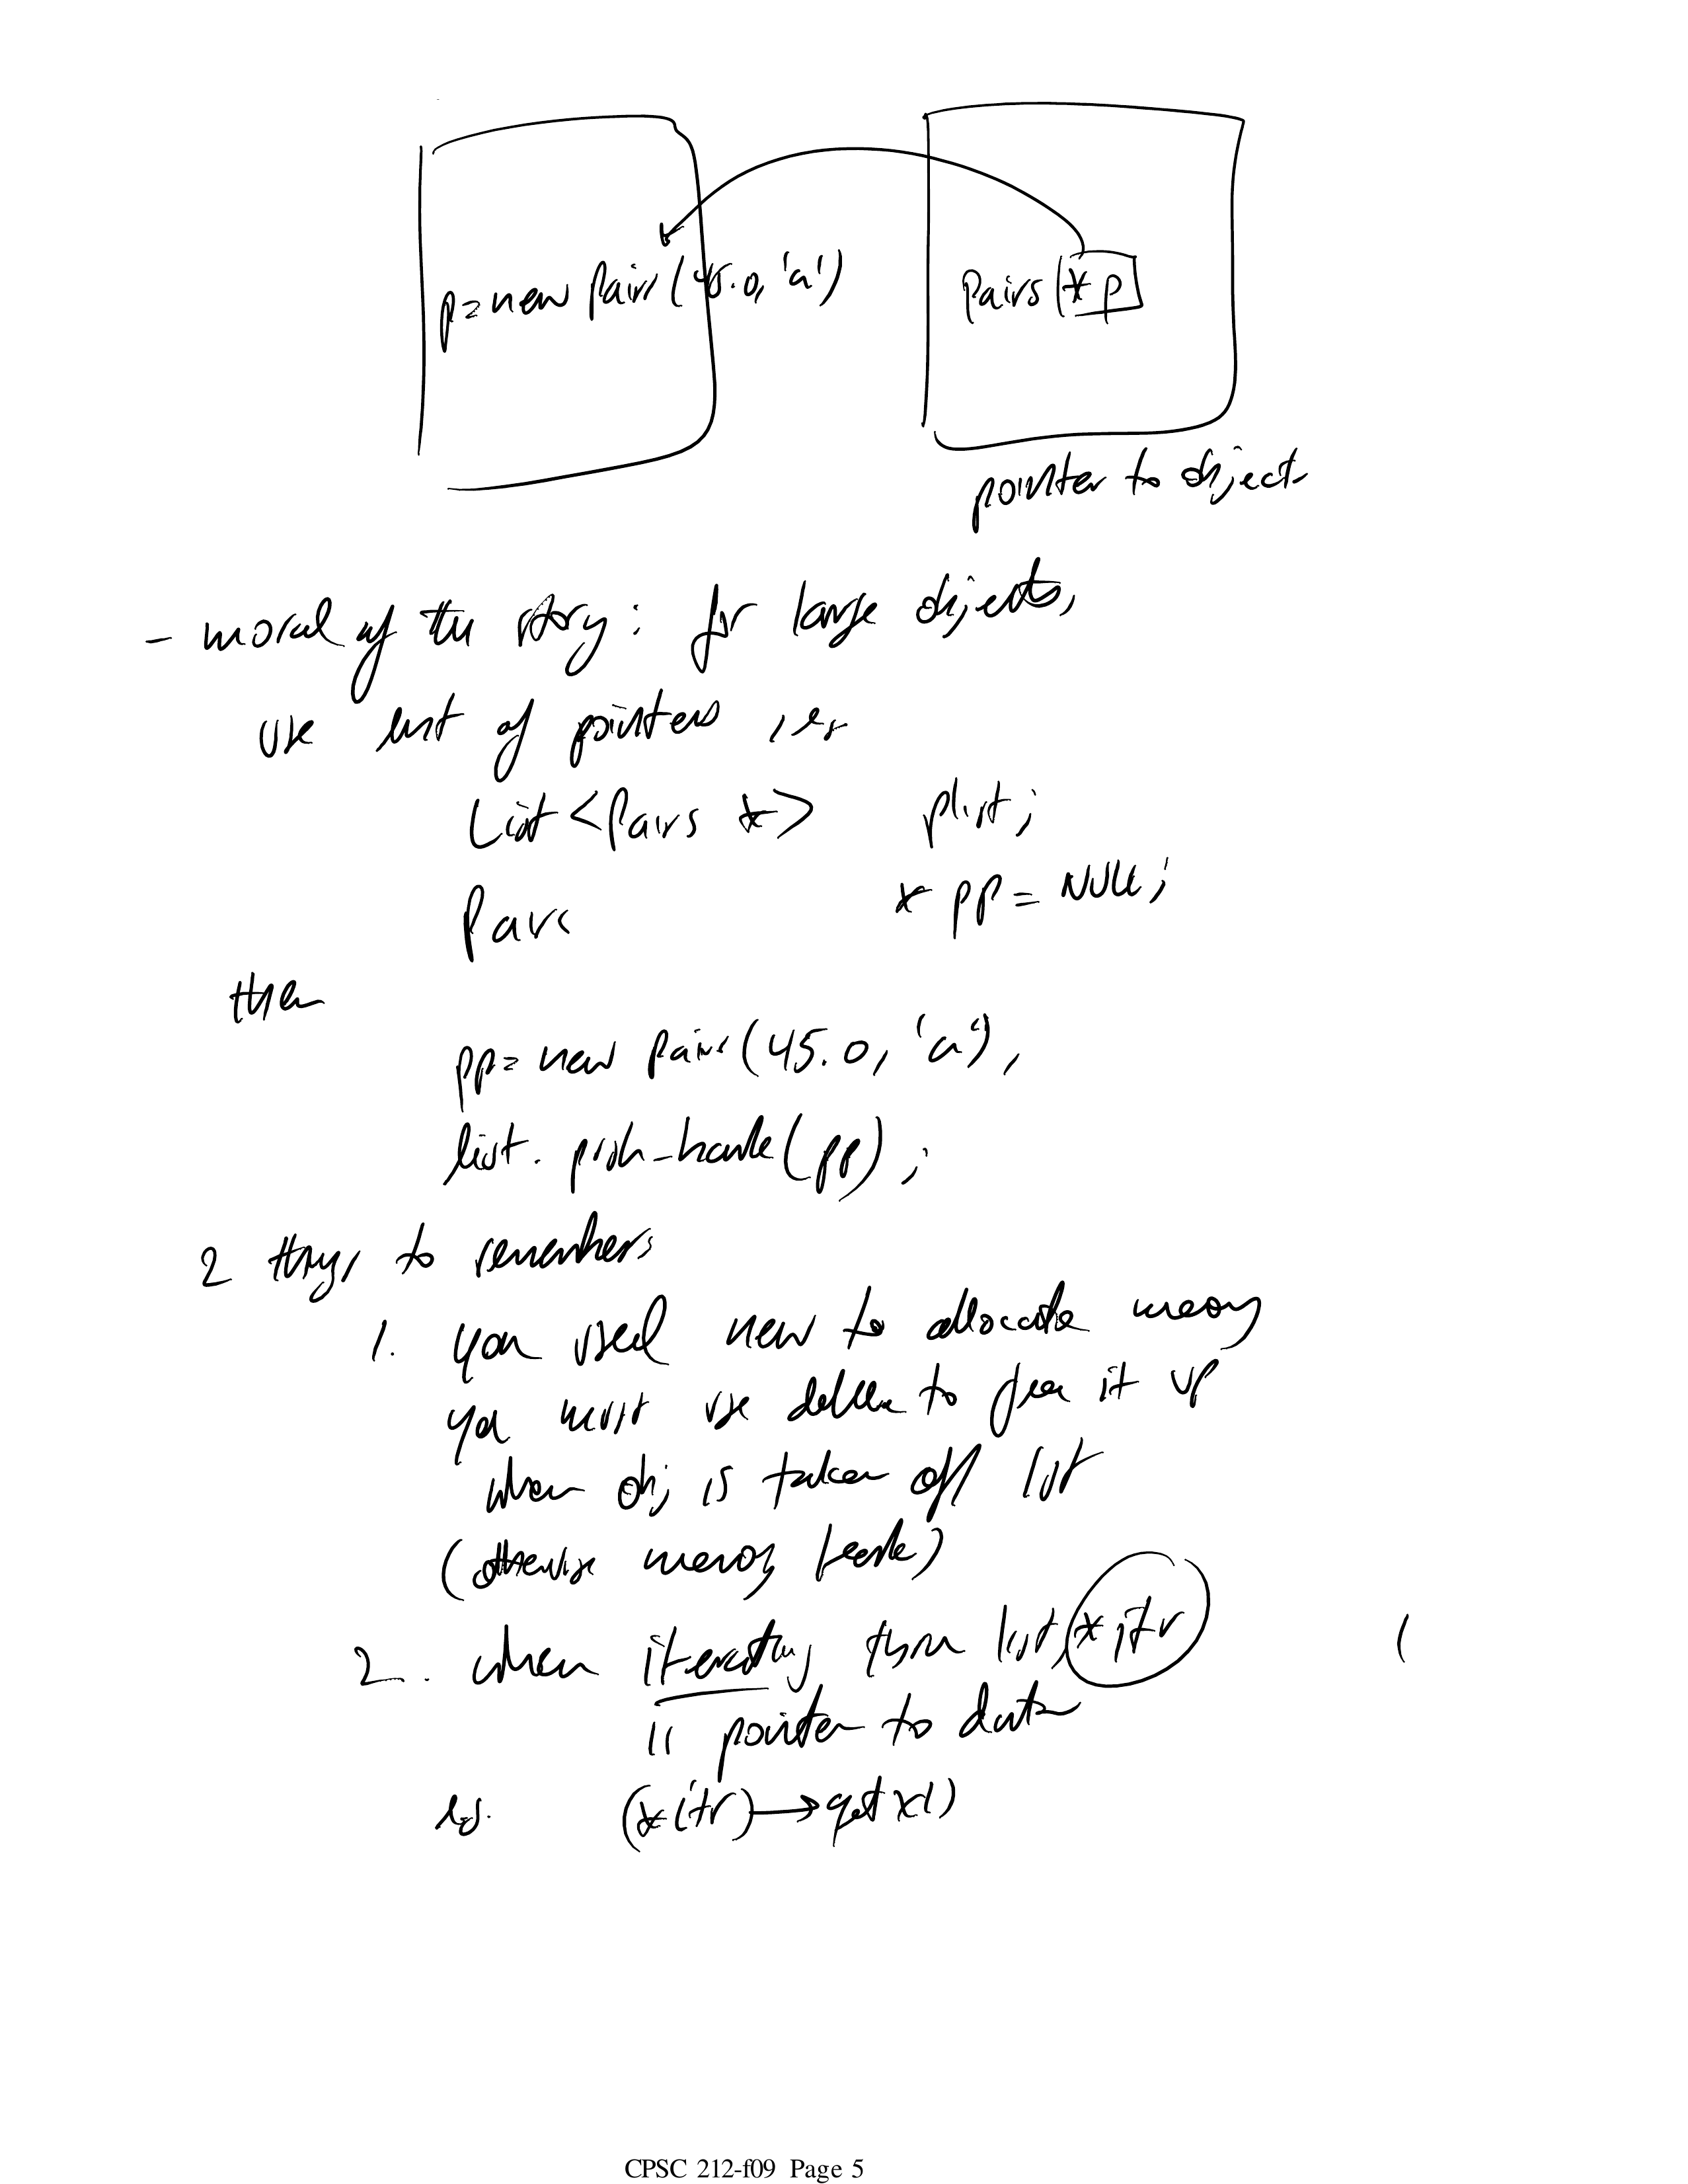 p=new Pairs(45.0, 'a')
Pairs *p
pointer to object
- moral of the story: for large objects,
use list of pointers, ie.
List<Pairs *> plist;
Pairs *pp = NULL;
then
pp= new Pairs(45.0, 'a');
list.push_back(pp);
2 things to remember:
1. you used new to allocate memory
you must use delete to free it up
when obj is taken off list
(otherwise memory leak)
2. when iterating thru list, *itr
is pointer to data
eg. (*itr)->getx()
CPSC 212-f09 Page 5